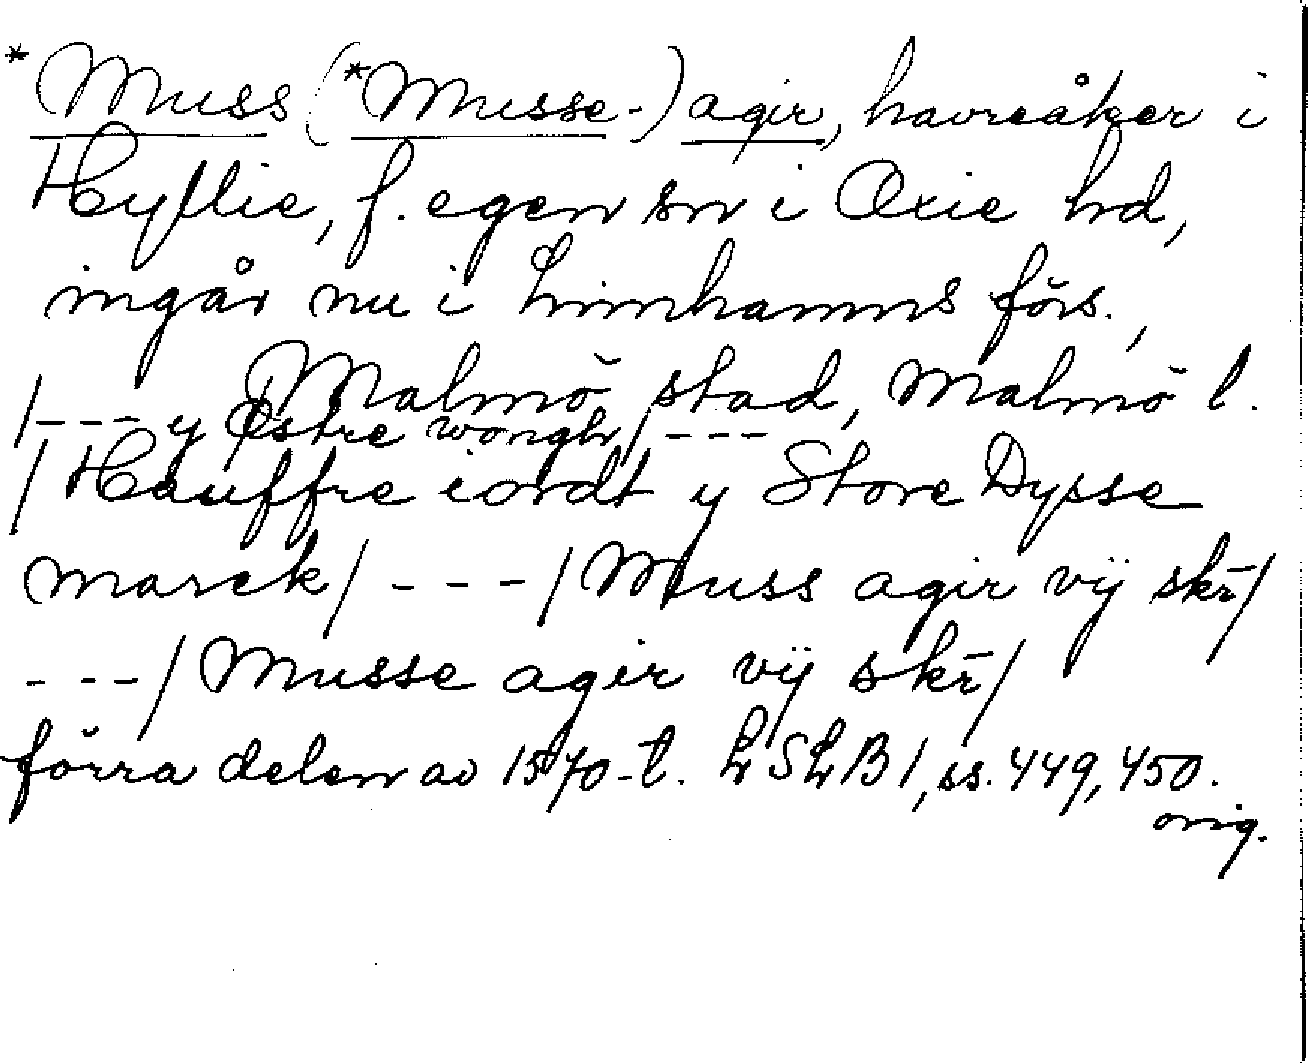 *Muss (*Musse-) agir, havreåker i
Hyllie, f. egen sn i Oxie hd,
ingår nu i Limhamns förs.,
Malmö stad, Malmö l.
/--- y Østre wongh/ ---
/Hauffre iordt y Store Dysse
marck/ --- /Muss agir vÿ skr̄/
---/Musse agir vÿ skr̄/
förra delen av 1570-t. LSLB 1, ss. 449, 450.
orig.